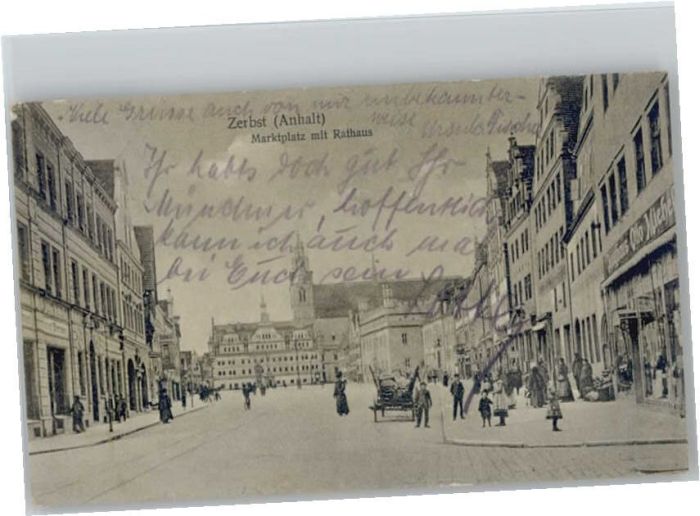 Viele Grüsse auch von mir unbekannter-
weise
Zerbst (Anhalt)
Ursula Fischer
Marktplatz mit Rathaus
Ihr habts doch gut Ihr
Münchner, hoffentlich
kann ich auch mal
bei Euch sein